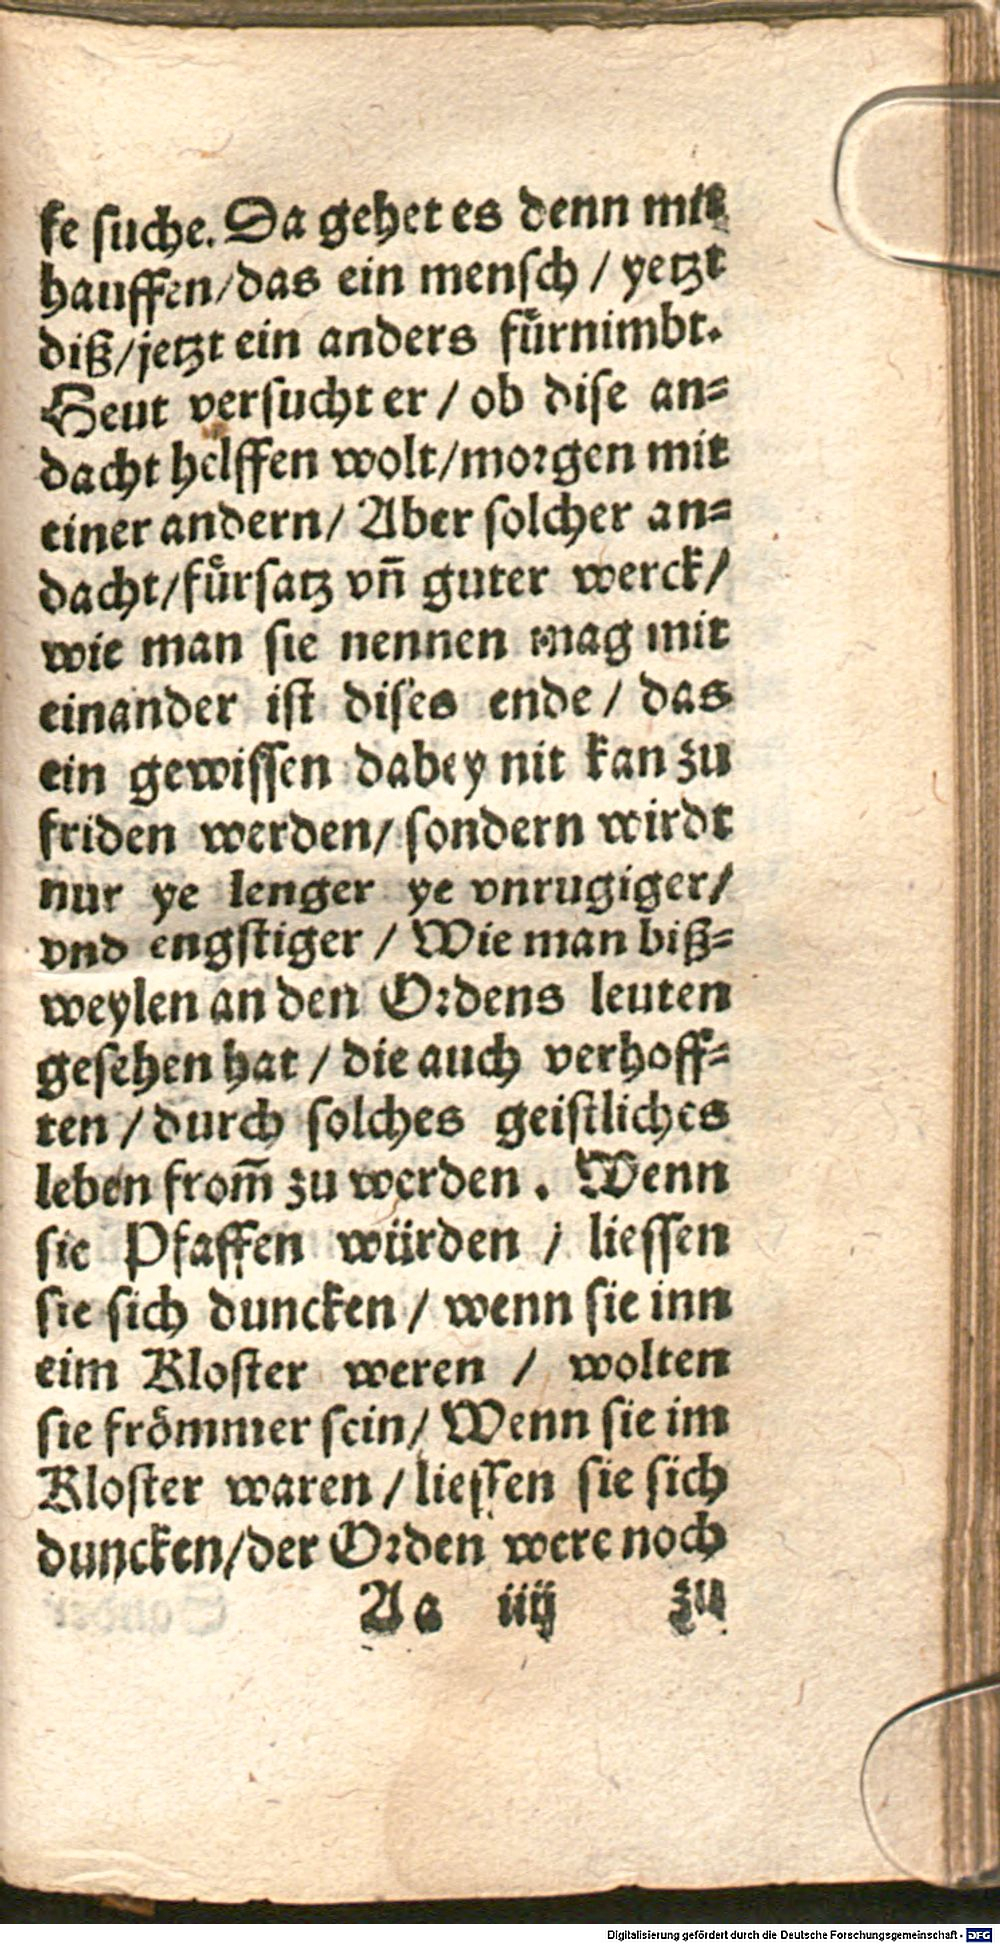 ke suche. Da gehet es denn mit
hauffen/das ein mensch / yetzt
diß/jetzt ein anders fuͤrnimbt.
Heut versucht er / ob dise an-
dacht helffen wolt/morgen mit
einer andern/ Aber solcher an-
dacht/fuͤrsatz vn̄ guter werck/
wie man sie nennen mag mit
einander ist dises ende / das
ein gewissen dabey nit kan zu
friden werden/ sondern wirdt
nur ye lenger ye vnrugiger/
vnd engstiger / Wie man biß-
weylen an den Ordens leuten
gesehen hat / die auch verhoff-
ten / durch solches geistliches
leben from̄ zu werden . Wenn
sie Pfaffen würden / liessen
sie sich duncken / wenn sie inn
eim Kloster weren / wolten
sie froͤmmer sein/ Wenn sie im
Kloster waren / liessen sie sich
duncken/der Orden were noch
Aa iiij zu
Digitalisierung gefördert durch die Deutsche Forschungsgemeinschaft - DFG